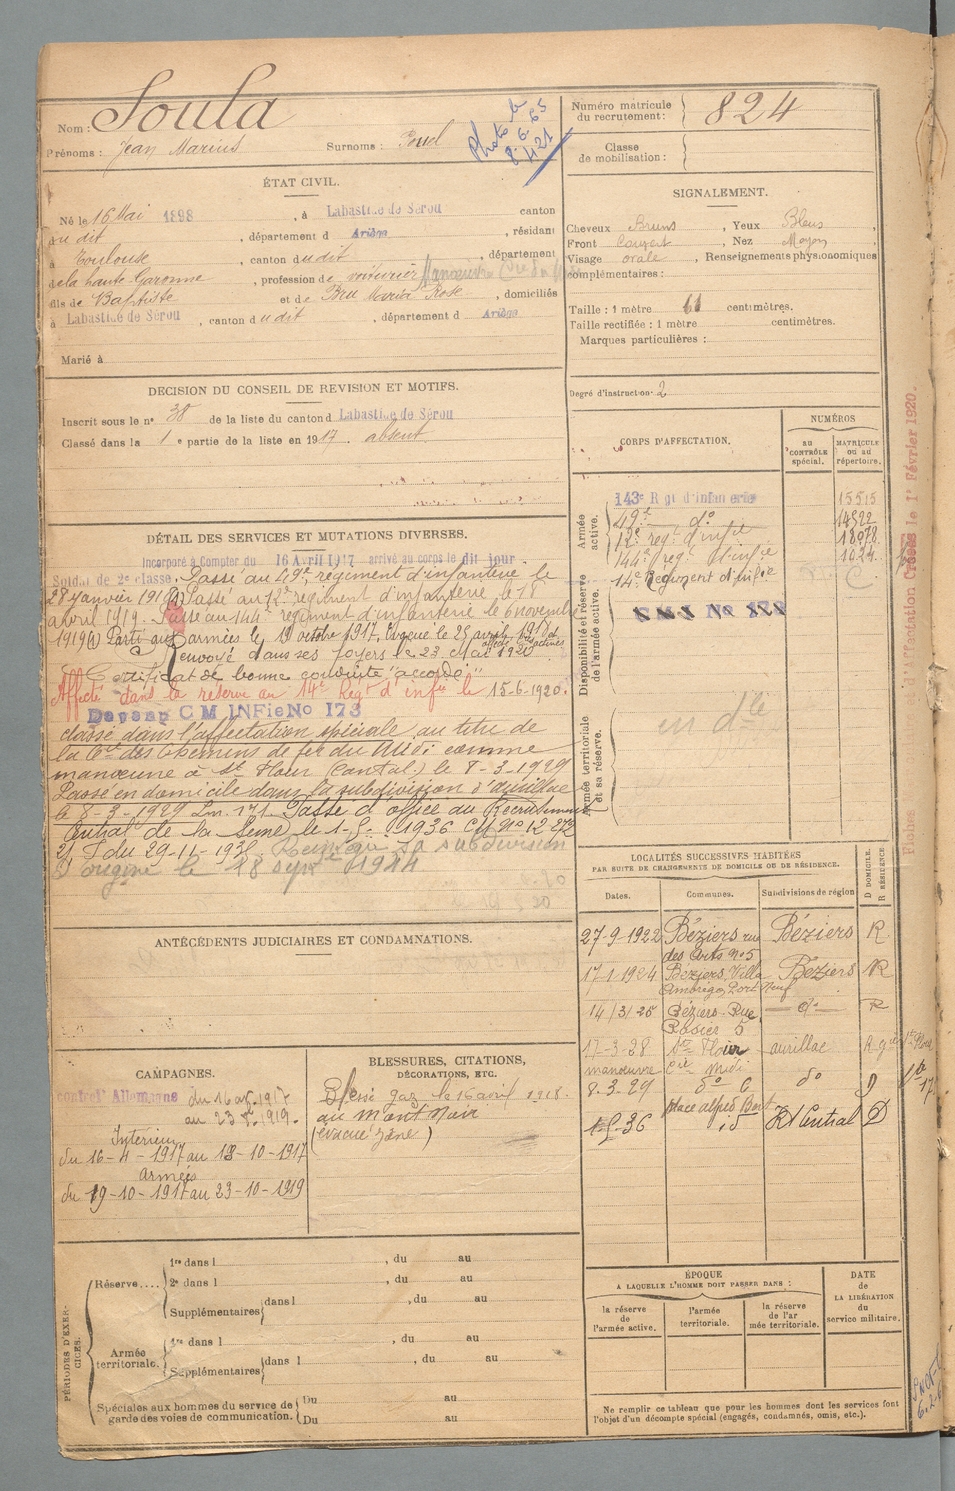 Nom : Soula
Prénoms : Jean Marius Surnoms :
Photo le
8.6.65
421
Numéro matricule du recrutement : 824
Classe de mobilisation :
ÉTAT CIVIL.
Né le 16 Mai 1898, à Labastide de Sérou canton
du dit, département d Ariège, résidant
à Toulouse, canton dudit, département
de la haute Garonne, profession de voiturier
fils de Baptiste et de Marie Rose, domiciliés
à Labastide de Sérou, canton dudit, département d Ariège
Marié à
SIGNALEMENT.
Cheveux Bruns, Yeux Bleus
Front Couvert, Nez Moyen
Visage ovale, Renseignements physionomiques
complémentaires :
Taille : 1 mètre 61 centimètres.
Taille rectifiée : 1 mètre centimètres.
Marques particulières :
Degré d'instruction. 2
DECISION DU CONSEIL DE REVISION ET MOTIFS.
Inscrit sous le n° 38 de la liste du canton d Labastide de Sérou
Classé dans la 1 e partie de la liste en 1917. absent
CORPS D'AFFECTATION.
NUMÉROS
au CONTRÔLE spécial.
MATRICULE ou au répertoire.
Armée active.
143e Rgt d'infanterie 15515
49e do 14522
12e regt d'infie 18078
144e regt d'infie 1024
Disponibilité et réserve de l'armée active.
14e Regiment d'Infie
Armée territoriale et sa réserve.
DÉTAIL DES SERVICES ET MUTATIONS DIVERSES.
Incorporé à Compter du 16 Avril 1917 arrivé au corps le dit jour.
Soldat de 2e classe. Passé au 49e régiment d'infanterie le
28 janvier 1918 Passé au 12e régiment d'infanterie le 18
avril 1919. Passé au 144e régiment d'infanterie le 6 novembre
1919 Parti aux armées le 19 octobre 1917. Evacué le 25 avril 1918
Renvoyé dans ses foyers le 23 Mai 1920
Certificat de bonne conduite "accordé"
Affecté dans la réserve au 14e Regt d'infie le 15-6-1920.
C M INFie No 173
classé dans l'affectation spéciale au titre de
la Cie des Chemins de fer du Midi comme
manœuvre à St Flour (Cantal) le 8-3-1929
Passé en domicile dans la subdivision d'aurillac
le 8-3-1929 Passé d'office au Recrutement
Central de la Seine le 1-5-1936 CM No 12 272
du 29-11-1935 sa subdivision
d'origine le 18 sept 1944
LOCALITÉS SUCCESSIVES HABITÉES
PAR SUITE DE CHANGEMENTS DE DOMICILE OU DE RÉSIDENCE.
Dates. Communes. Subdivisions de région D DOMICILE. R RÉSIDENCE
27-9-1922 Béziers rue des Arts no 5 Béziers R
17-1-1924 Béziers Villa Port Neuf Béziers R
14/3/25 Béziers Rue Rosier 5 do R
17-3-28 St Flour aurillac R
manœuvre Cie Midi
8.3.29 do do D
36 place alfred Bert Rt Central D
ANTÉCÉDENTS JUDICIAIRES ET CONDAMNATIONS.
CAMPAGNES.
contre l'Allemagne du 16 av. 1917
au 23 8. 1919.
Intérieur
du 16-4-1917 au 18-10-1917
armées
du 19-10-1917 au 23-10-1919
BLESSURES, CITATIONS, DÉCORATIONS, ETC.
Blessé Gaz le 16 avril 1918.
au Mont Noir
PÉRIODES D'EXERCICES.
Réserve.... 1re dans l, du au
2e dans l, du au
Supplémentaires dans l, du au
Armée territoriale. 1re dans l, du au
Supplémentaires dans l, du au
Spéciales aux hommes du service de garde des voies de communication. Du au
Du au
ÉPOQUE
A LAQUELLE L'HOMME DOIT PASSER DANS :
la réserve de l'armée active.
l'armée territoriale.
la réserve de l'armée territoriale.
DATE de LA LIBÉRATION du service militaire.
Ne remplir ce tableau que pour les hommes dont les services font
l'objet d'un décompte spécial (engagés, condamnés, omis, etc.).
d'Affectation Créées le 1er Février 1920.